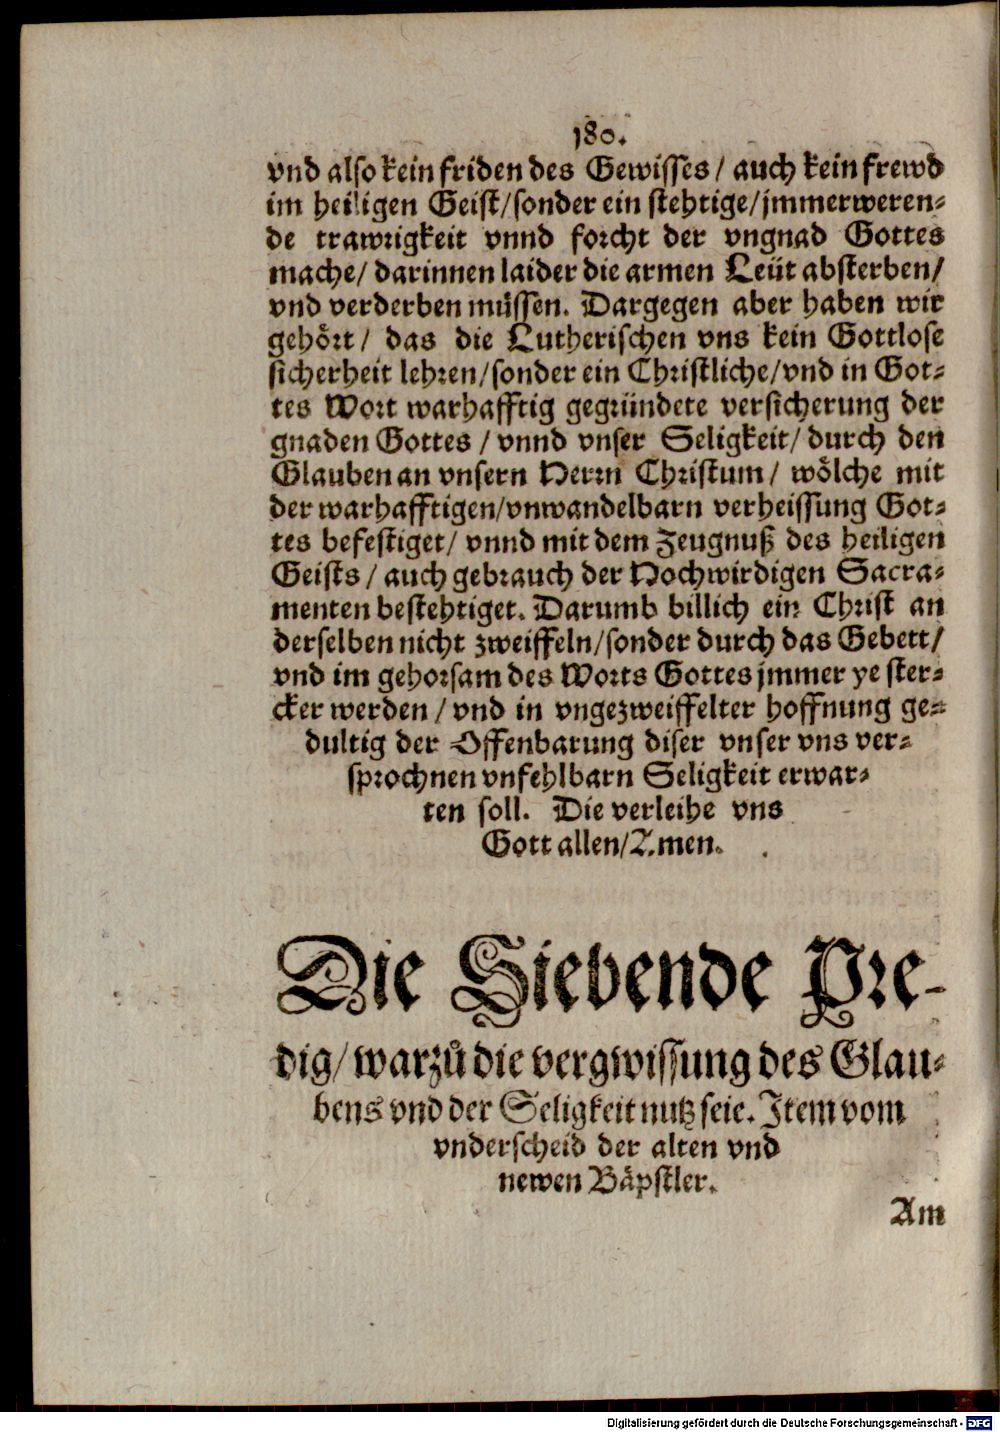 180.
vnd also kein friden des Gewisses / auch kein frewd
im heiligen Geist/sonder ein stehtige/jmmerweren-
de trawrigkeit vnnd forcht der vngnad Gottes
mache/ darinnen laider die armen Leüt absterben/
vnd verderben müssen. Dargegen aber haben wir
gehört/ das die Lutherischen vns kein Gottlose
sicherheit lehren/sonder ein Christliche/vnd in Got-
tes Wort warhafftig gegründete versicherung der
gnaden Gottes / vnnd vnser Seligkeit/ durch den
Glauben an vnsern Herrn Christum/ wölche mit
der warhafftigen/vnwandelbarn verheissung Got-
tes befestiget/ vnnd mit dem Zeugnuß des heiligen
Geists / auch gebrauch der Hochwirdigen Sacra-
menten bestehtiget. Darumb billich ein Christ an
derselben nicht zweiffeln/sonder durch das Gebett/
vnd im gehorsam des Worts Gottes jmmer ye ster-
cker werden / vnd in vngezweiffelter hoffnung ge-
dultig der Offenbarung diser vnser vns ver-
sprochnen vnfehlbarn Seligkeit erwar-
ten soll. Die verleihe vns
Gott allen/Amen.
Die Siebende Pre-
dig/ warzů die vergwissung des Glau-
bens vnd der Seligkeit nutz seie. Item vom
vnderscheid der alten vnd
newen Bäpstler.
Am
Digitalisierung gefördert durch die Deutsche Forschungsgemeinschaft - DFG